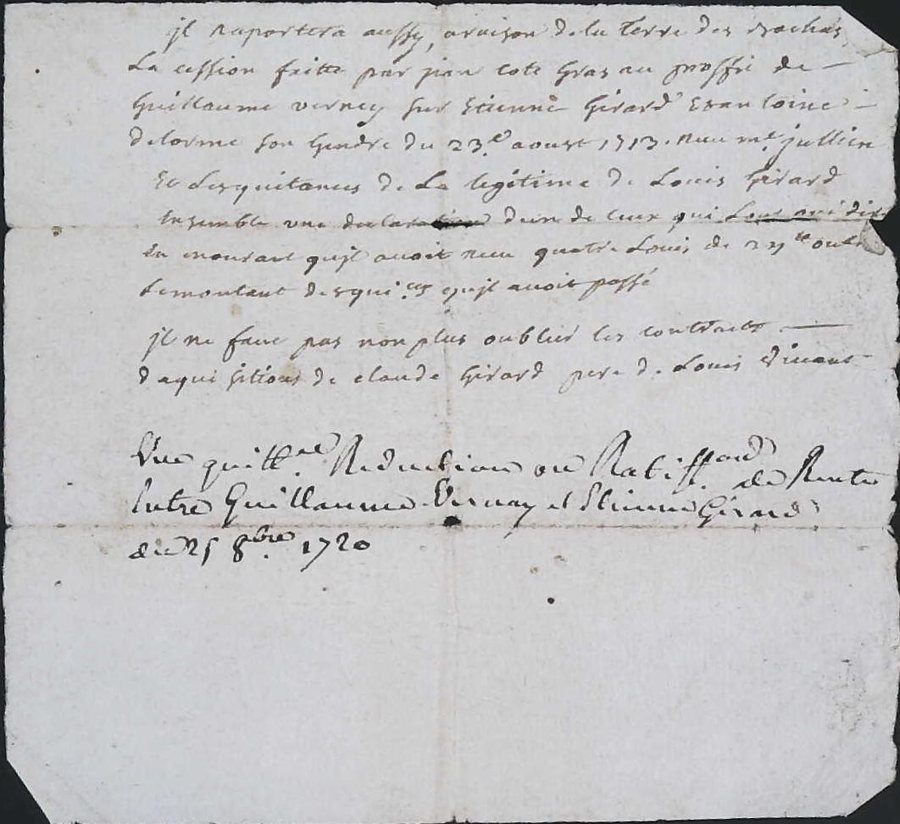 jl raportera aussy, araison dela terre des rochas
La cession faitte par jean cote gras au proffit de —
Guillaume verney sur Etienne Girard Et antoine —
delorme son Gendre du 23.e aoust 1713. Receu me. jullien
Et Les quitances de La legitime de Louis Girard
Ensemble une declaration dun de ceux qui
En mourant qujl avoit receu quatre Louis de outre
Le montant des quitces qujl avoit passé
jl ne faut pas non plus oublier les contracts —
daquisitions de claude Girard pere de Louis
Une quittce. Reduction ou de Rente
Entre Guillaume Vernay et Etienne Girard
du 25 8bre. 1720